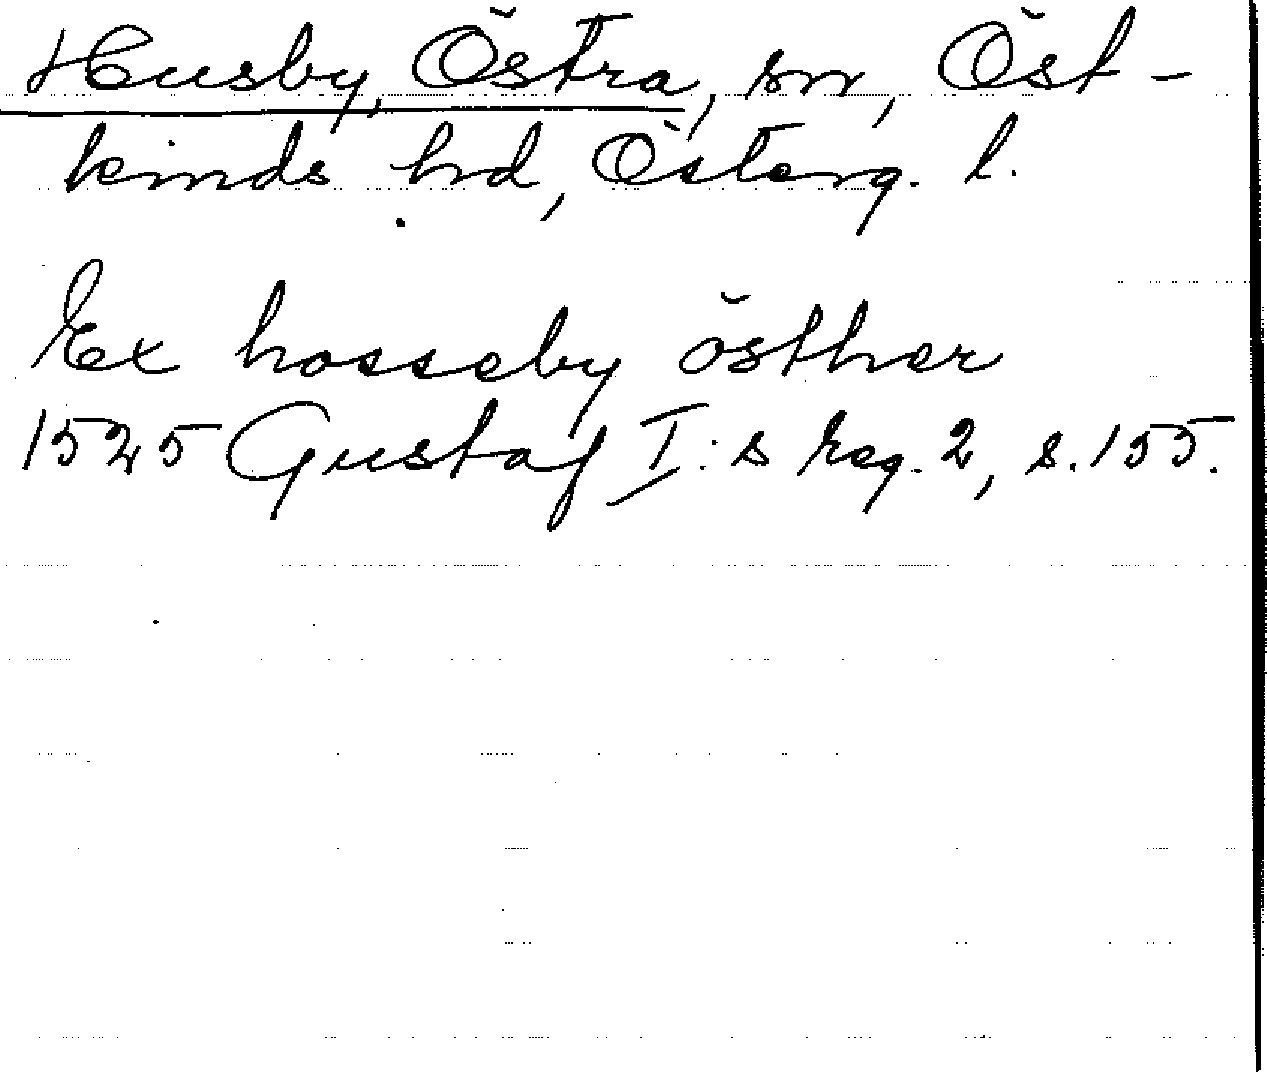 Husby, Östra, sn, Öst-
kinds hd, Österg. l.
Ex hosseby östher
1525 Gustaf I:s Reg. 2, s. 155.